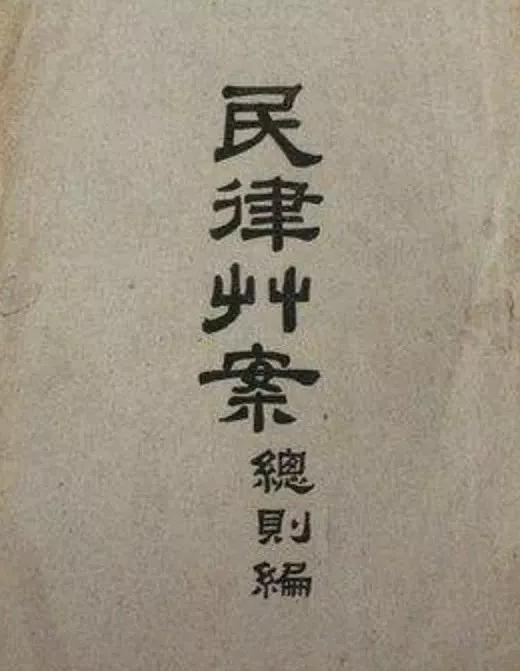 民律艸案
總則編